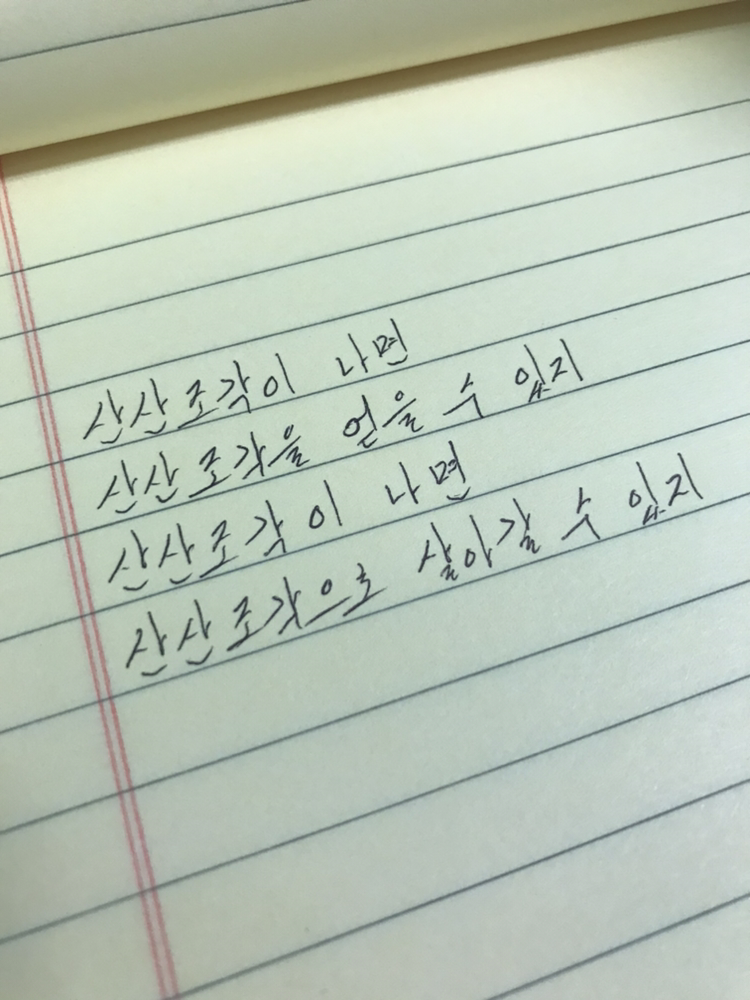 산산조각이 나면
산산조각을 얻을 수 있지
산산조각이 나면
산산조각으로 살아갈 수 있지